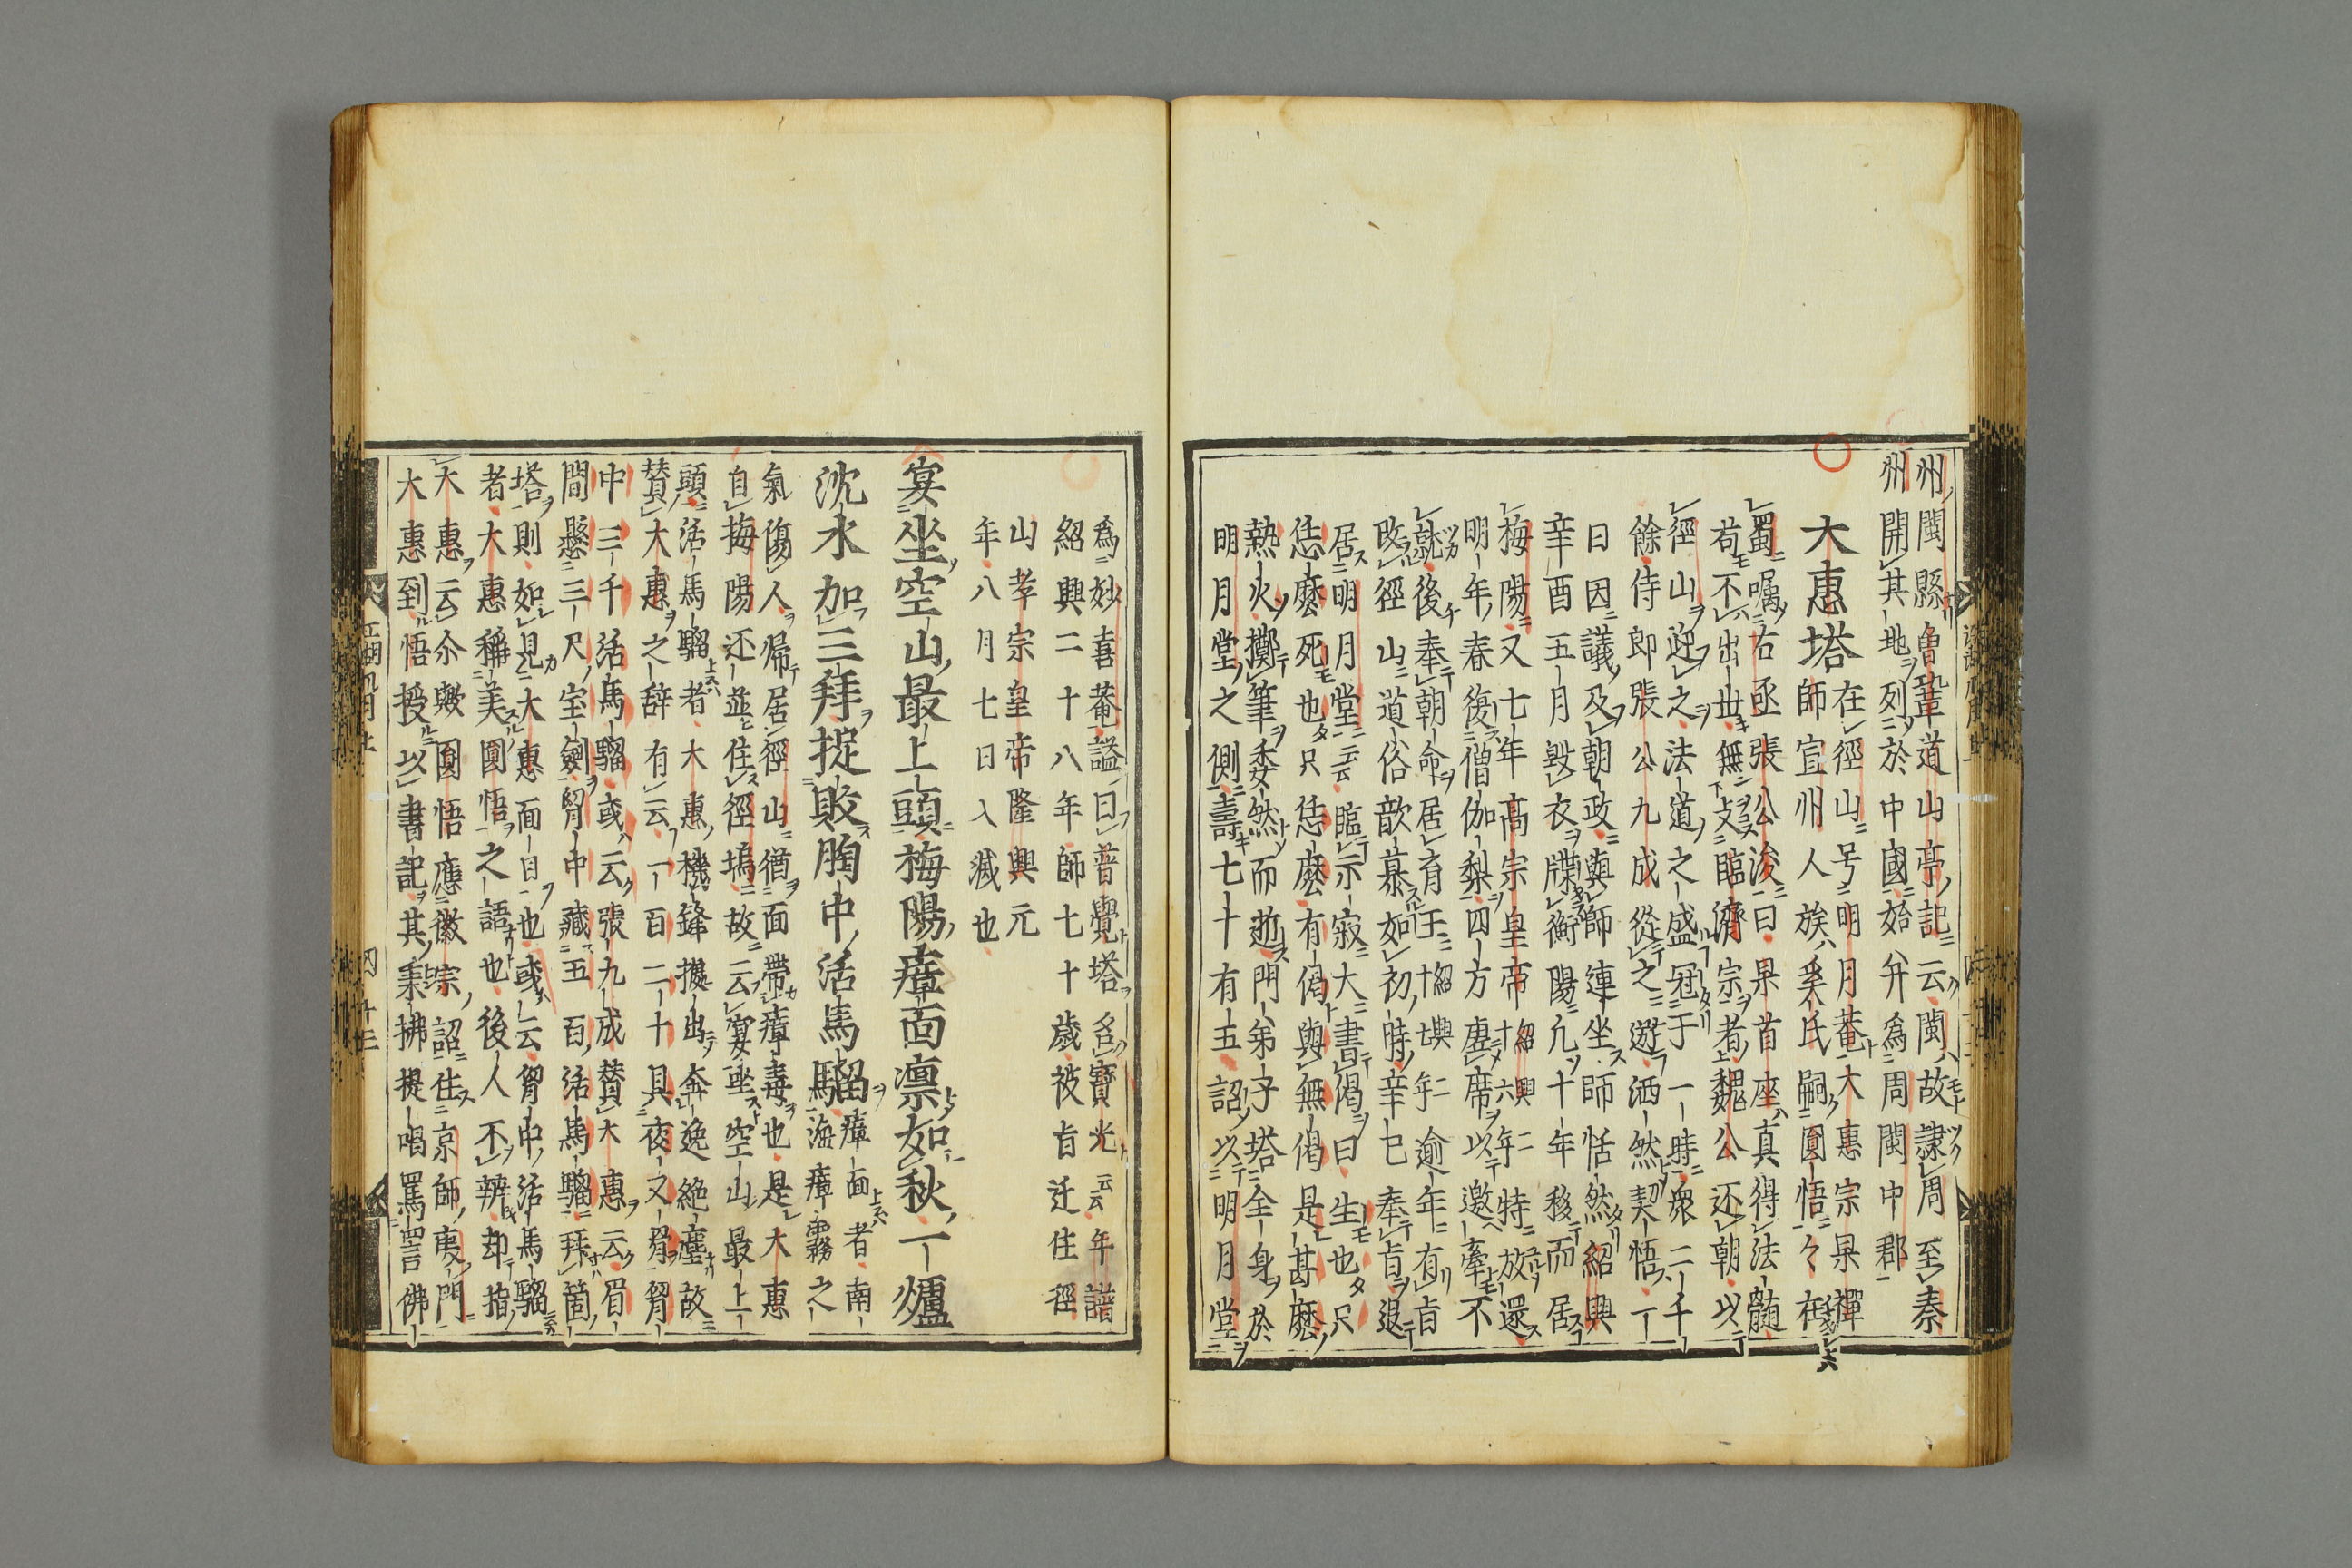 州閩縣魯鞏道山亭記云閩故隷周至秦
州開其地列於中國始幷爲周閩中郡
大惠塔
在徑山号明月菴大惠宗杲禪
師宣州人族奚氏嗣圓悟々在
蜀囑右丞張公浚曰杲首座真得法髄
苟不出世無支臨濟宗者魏公还朝以
徑山迎之法道之盛冠于一時衆二千
餘侍郎張公九成從之遊洒然契悟一
日因議及朝政與師連坐師恬然紹興
辛酉五月毀衣牒衡陽凢十年移而居
梅陽又七年高宗皇帝紹興二十六年特放還
明年春復僧伽梨四方虛席以邀牽不
就後奉朝命居育王紹興二十七年逾年有旨
改徑山道俗歆慕如初時辛巳奉旨退
居明月堂云云臨示寂大書偈曰生也只
恁麼死也只恁麼有偈與無偈是甚麼
熱火擲筆委然而逝門弟子塔全身於
明月堂之側壽七十有五詔以明月堂
爲妙喜菴謚曰普覺塔名寶光云云年譜
紹興二十八年師七十歲被旨迁住徑
山孝宗皇帝隆興元
年八月七日入滅也
宴坐空山最上頭梅陽瘴面凛如秋一爐
沈水加三拜捉敗胸中活馬騮瘴面者南海瘴霧之
氣傷人歸居徑山猶面帶瘴毒也是大惠
自梅陽还並住徑塢故云宴坐空山最上
頭活馬騮者大惠機鋒撥出奔逸絶塵故
賛大惠之辞有云一百二十具夜叉骨胷
中三千活馬騮或云張九成賛大惠云眉
間懸三尺宝劍胷中藏五百活馬騮拜箇
塔則如見大惠面目也或云胷中活馬騮云云
者大惠稱美圓悟之語也後人不辨却指
大惠云尒歟圓悟應徽宗詔住京師夷門
大惠到悟授以書記其秉拂提唱罵詈佛